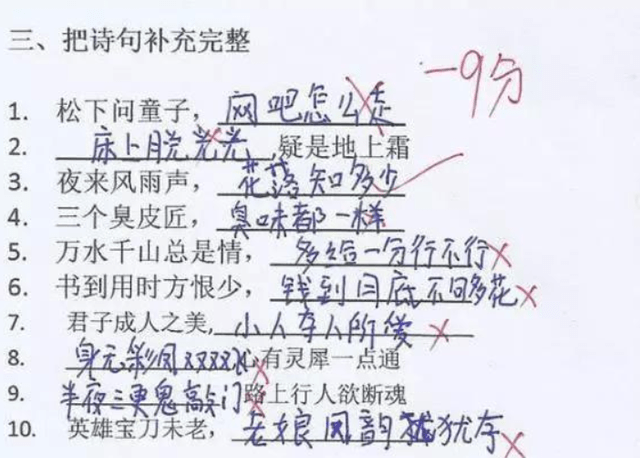 三、把诗句补充完整
-9分
1. 松下问童子，网吧怎么走
2. 床上脱光光,疑是地上霜
3. 夜来风雨声，花落知多少
4. 三个臭皮匠，臭味都一样
5. 万水千山总是情，多给一分行不行
6. 书到用时方恨少，钱到月底不够花
7. 君子成人之美,小人夺人所爱
8. 身无彩凤 心有灵犀一点通
9. 半夜三更鬼敲门路上行人欲断魂
10. 英雄宝刀未老，老娘风韵犹存